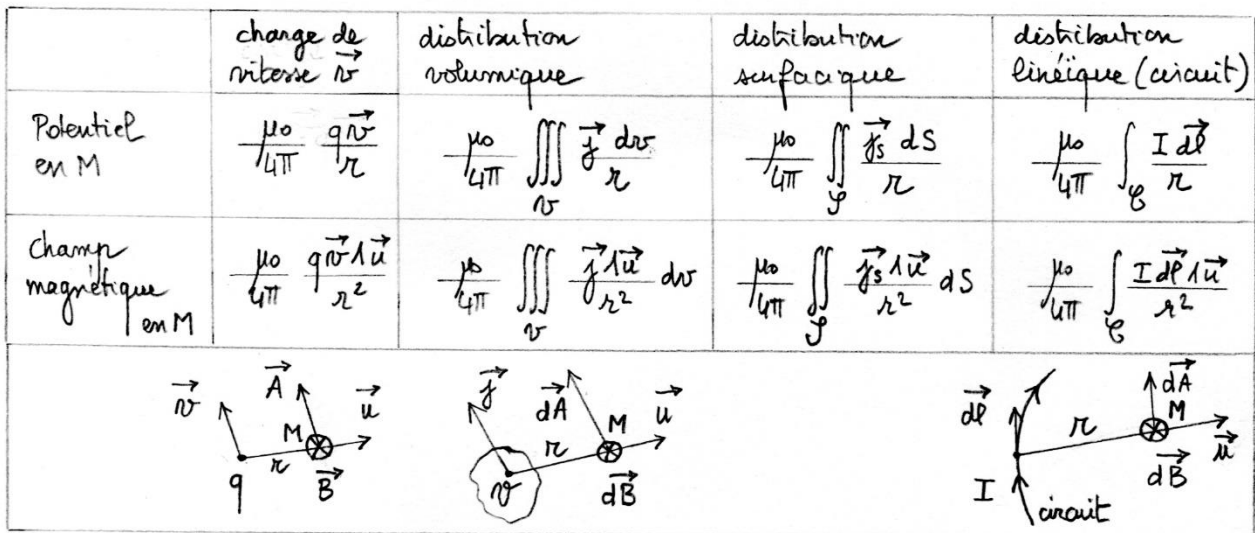 charge de vitesse \vec{v} | distribution volumique | distribution surfacique | distribution linéïque (circuit)
Potentiel en M | \frac{μ_0}{4π} \frac{q\vec{v}}{r} | \frac{μ_0}{4π} \iiint_v \vec{j} \frac{dv}{r} | \frac{μ_0}{4π} \iint_S \frac{\vec{j_S} dS}{r} | \frac{μ_0}{4π} \int_C \frac{I \vec{dl}}{r}
Champ magnétique en M | \frac{μ_0}{4π} \frac{q\vec{v} ∧ \vec{u}}{r^2} | \frac{μ_0}{4π} \iiint_v \frac{\vec{j} ∧ \vec{u}}{r^2} dv | \frac{μ_0}{4π} \iint_S \frac{\vec{j_S} ∧ \vec{u}}{r^2} dS | \frac{μ_0}{4π} \int_C \frac{I \vec{dl} ∧ \vec{u}}{r^2}
\vec{v} \vec{A} M \vec{u} r q \vec{B}
\vec{j} \vec{dA} M \vec{u} r v \vec{dB}
\vec{dl} \vec{dA} M r \vec{u} \vec{dB} I circuit